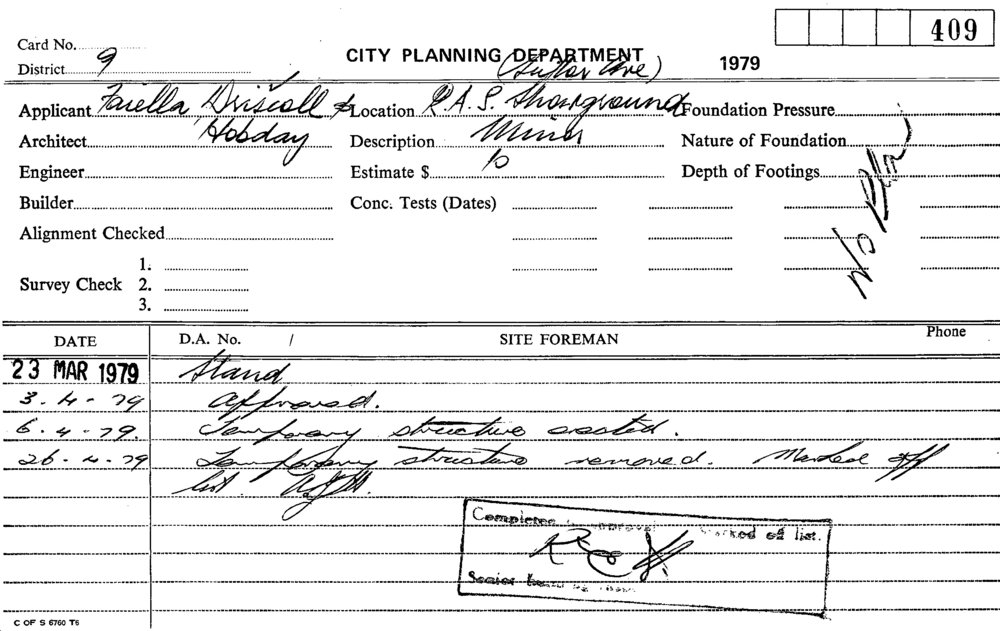 409
Card No.
CITY PLANNING DEPARTMENT 1979
District 9 (Suttor Ave)
Applicant Faiella Driscoll & Location R.A.S. Showground Foundation Pressure
Architect Hobday Description Minor Nature of Foundation
Engineer Estimate $ Depth of Footings
No Plan
Builder Conc. Tests (Dates)
Alignment Checked
1.
Survey Check 2.
3.
DATE D.A. No. / SITE FOREMAN Phone
23 MAR 1979 Stand
3-4-79 Approved.
6-4-79. Temporary structure erected.
26-4-79 Temporary structure removed. Marked off
list.
Completed approval marked off list.
Senior
C OF S 6760 T6